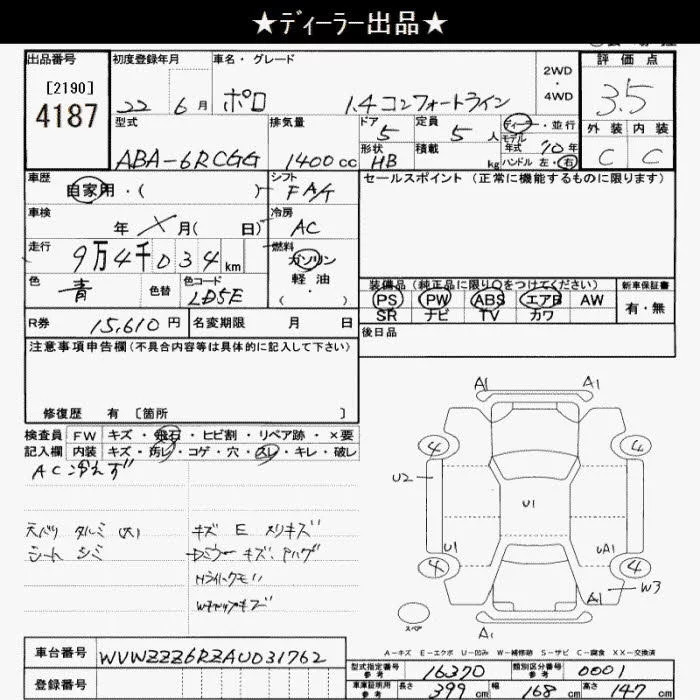 ★ディーラー出品★
出品番号 初度登録年月 車名・グレード 2WD・4WD 評価点
[2190]
4187 22 6月 ポロ 1.4 コンフォートライン 3.5
型式 排気量 ドア 5 定員 5人 ディーラー・並行 外装 内装
ABA-6RCGG 1400cc 形状 HB 積載 kg モデル年式 10年 ハンドル 左・右 C C
車歴 自家用・( ) シフト FA/T セールスポイント (正常に機能するものに限ります)
車検 年 月( 日) 冷房 AC
走行 9万4千034km 燃料 ガソリン
軽油
・( )
色 青 色替 色コード LD5E
装備品 (純正品に限り○をつけてください) 新車保証書
PS PW ABS エアB AW 有・無
SR ナビ TV カワ
R券 15,610円 名変期限 月 日 後日品
注意事項申告欄(不具合内容等は具体的に記入して下さい)
修復歴 有 〔箇所 〕
検査員 FW キズ・飛石・ヒビ割・リペア跡・×要
記入欄 内装 キズ・汚レ・コゲ・穴・スレ・キレ・破レ
AC冷えず
天バリ タルミ(大) キズ E メリキズ
シート シミ Dミラーキズ、ハゲ
Hライトクモリ
Wキャップキズ
A1 A1
4 4
U2
U1
U1 UA1
4 4
A1 W3
スペア
A1
A-キズ E-エクボ U-凹み W-補修跡 S-サビ C-腐食 XX-交換済
車台番号 WVWZZZ6RZAU031762
型式指定番号 参考 16370 類別区分番号 参考 0001
登録番号
車庫証明用 参考 長さ 399cm 幅 168cm 高さ 147cm